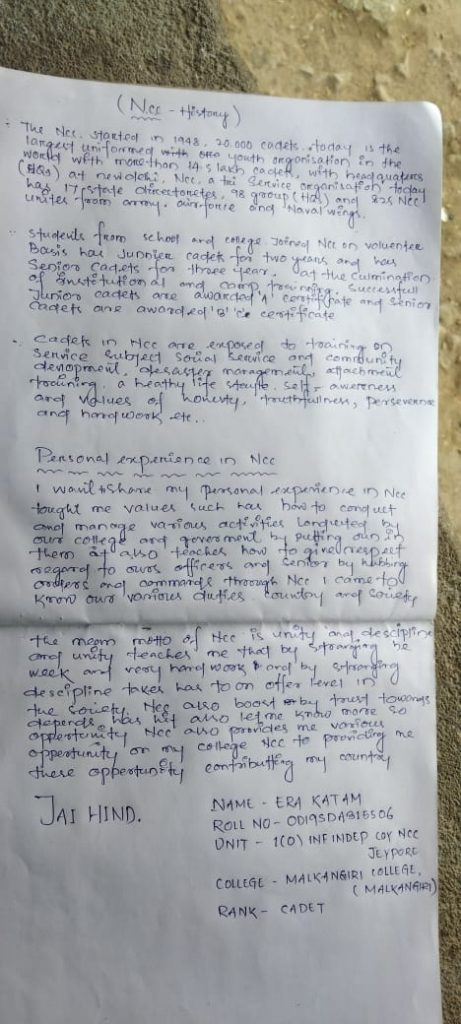 (Ncc - History)
The Ncc. started in 1948, 20.000 cadets. today is the
largest uniformed with one youth organisation in the
world with more than 14.5 lakh cadets, with headquaters
(HQs) at new delhi, Ncc, a tri service organisation today
has 17 state directoretes, 98 group (HQs) and 825 Ncc
unites from army, air force and Naval wings.
students from school and college Joined Ncc on voluentee
Basis has Junnier cadets for two years and has
Senior cadets for three year. at the culmination
of institutional and camp training, successfull
Junior cadets are awarded 'A' certificate and senior
cadets are awarded 'B' 'C' certificate
Cadets in Ncc are exposed to training on
service subject social service and community
devlopment, desaster management, attachment
trouining. a heathy life self awereness
and values of honesty, truthfullness, perseverence
and hardwork etc..
Personal experience in Ncc
I want to share my personal experience in Ncc
tought me values such has how to conduct
and manage various activities conducted by
our college and goverment by putting our in
them it also teaches how to give respect
regard to ours officers and senior by
orders and commands through Ncc I came to
know our various duties country and society
the mean motto of Ncc is unity and descipline
and unity teaches me that by be
week and very hard work and by
descipline takes has to on offer level in
the society. Ncc also boost by trust towards
depends has hit also let me know more so
oppertunity Ncc also provides me various
oppertunity on my college Ncc to providing me
these oppertunity contributting my country
JAI HIND.
NAME - ERA KATAM
ROLL NO - OD19SDA815506
UNIT - 1(O) INF INDEP COY NCC
JEYPORE
COLLEGE - MALKANGIRI COLLEGE,
(MALKANGIRI)
RANK - CADET